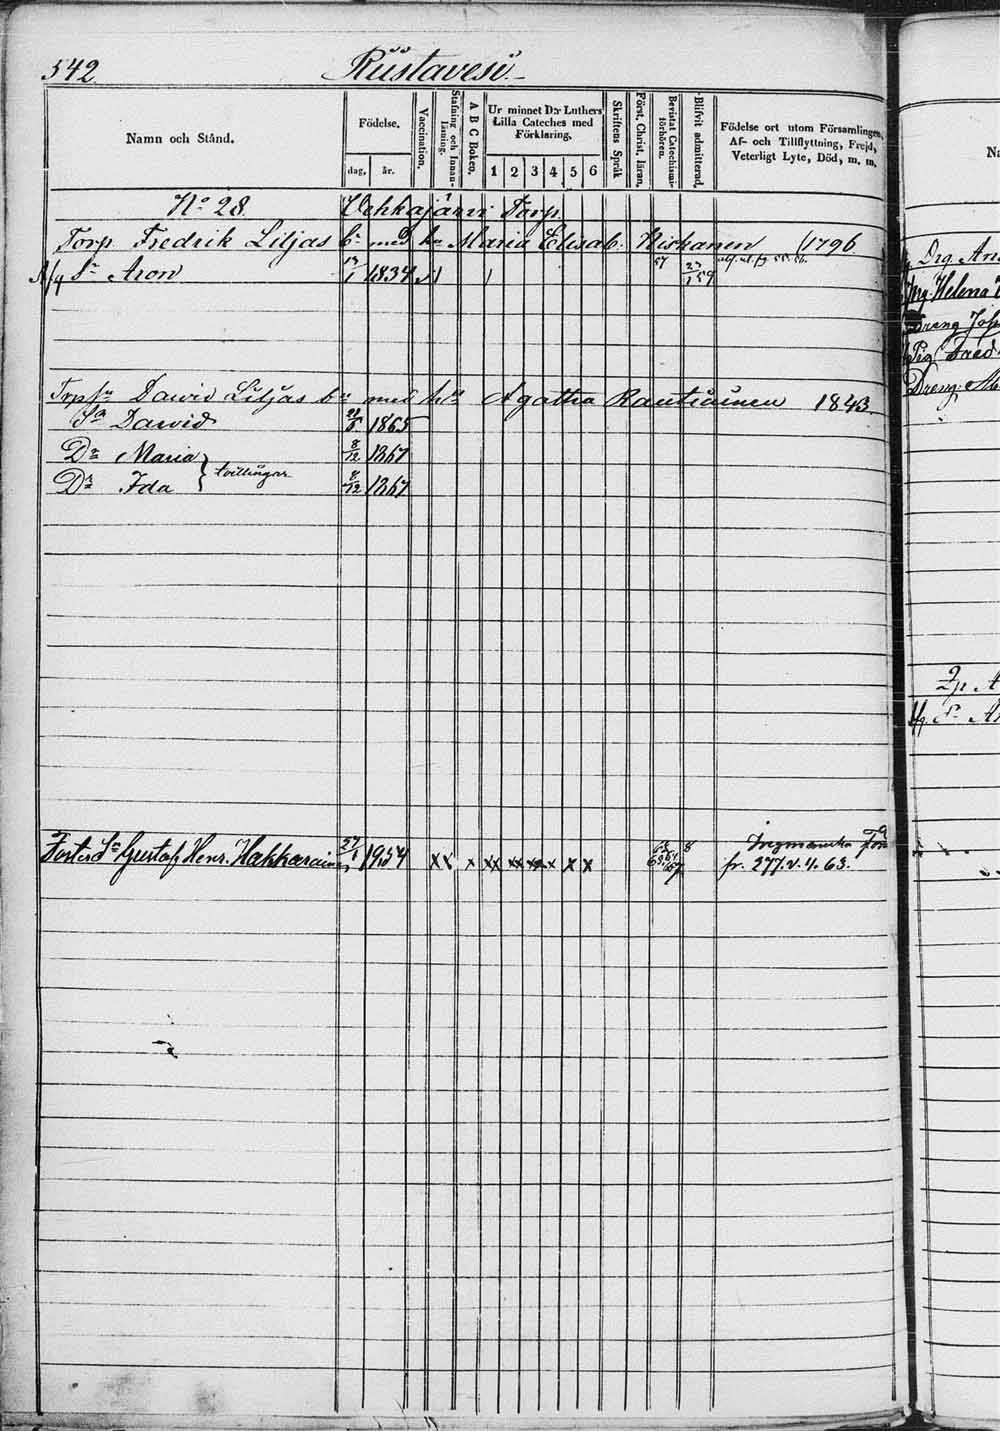 542 Rustavesi.
Namn och Stånd.
Födelse.
dag, år.
Vaccination.
Stafning och Innanläsning.
A B C Boken.
Ur minnet D:r Luthers Lilla Cateches med Förklaring.
1 2 3 4 5 6
Skriftens Språk
Först. Christ. läran.
Bevistat Catechismi-förhören.
Blifvit admitterad.
Födelse ort utom Församlingen, Af- och Tillflyttning, Frejd, Veterligt Lyte, Död, m. m.
No 28. Vehkajärvi Torp
Torp. Fredrik Liljas Ene med hu Maria Elisab. Niskanen 1796.
Sn Aron 1834 57 59
Torpsn Dawid Liljas med hu Agatha Rautiainen 1843.
Sn Dawid 21/5 1865
Dr Maria 8/12 1867
tvillingar
Dr Ida 8/12 1867
FosterSn Gustaf Henr. Hakkarainen 27/1 1854 x x x x x x x x x x x x 8
fr. 277. v. 4. 63.
Drg. Ar
Helena
Dreng Joh
Pig
Dreng